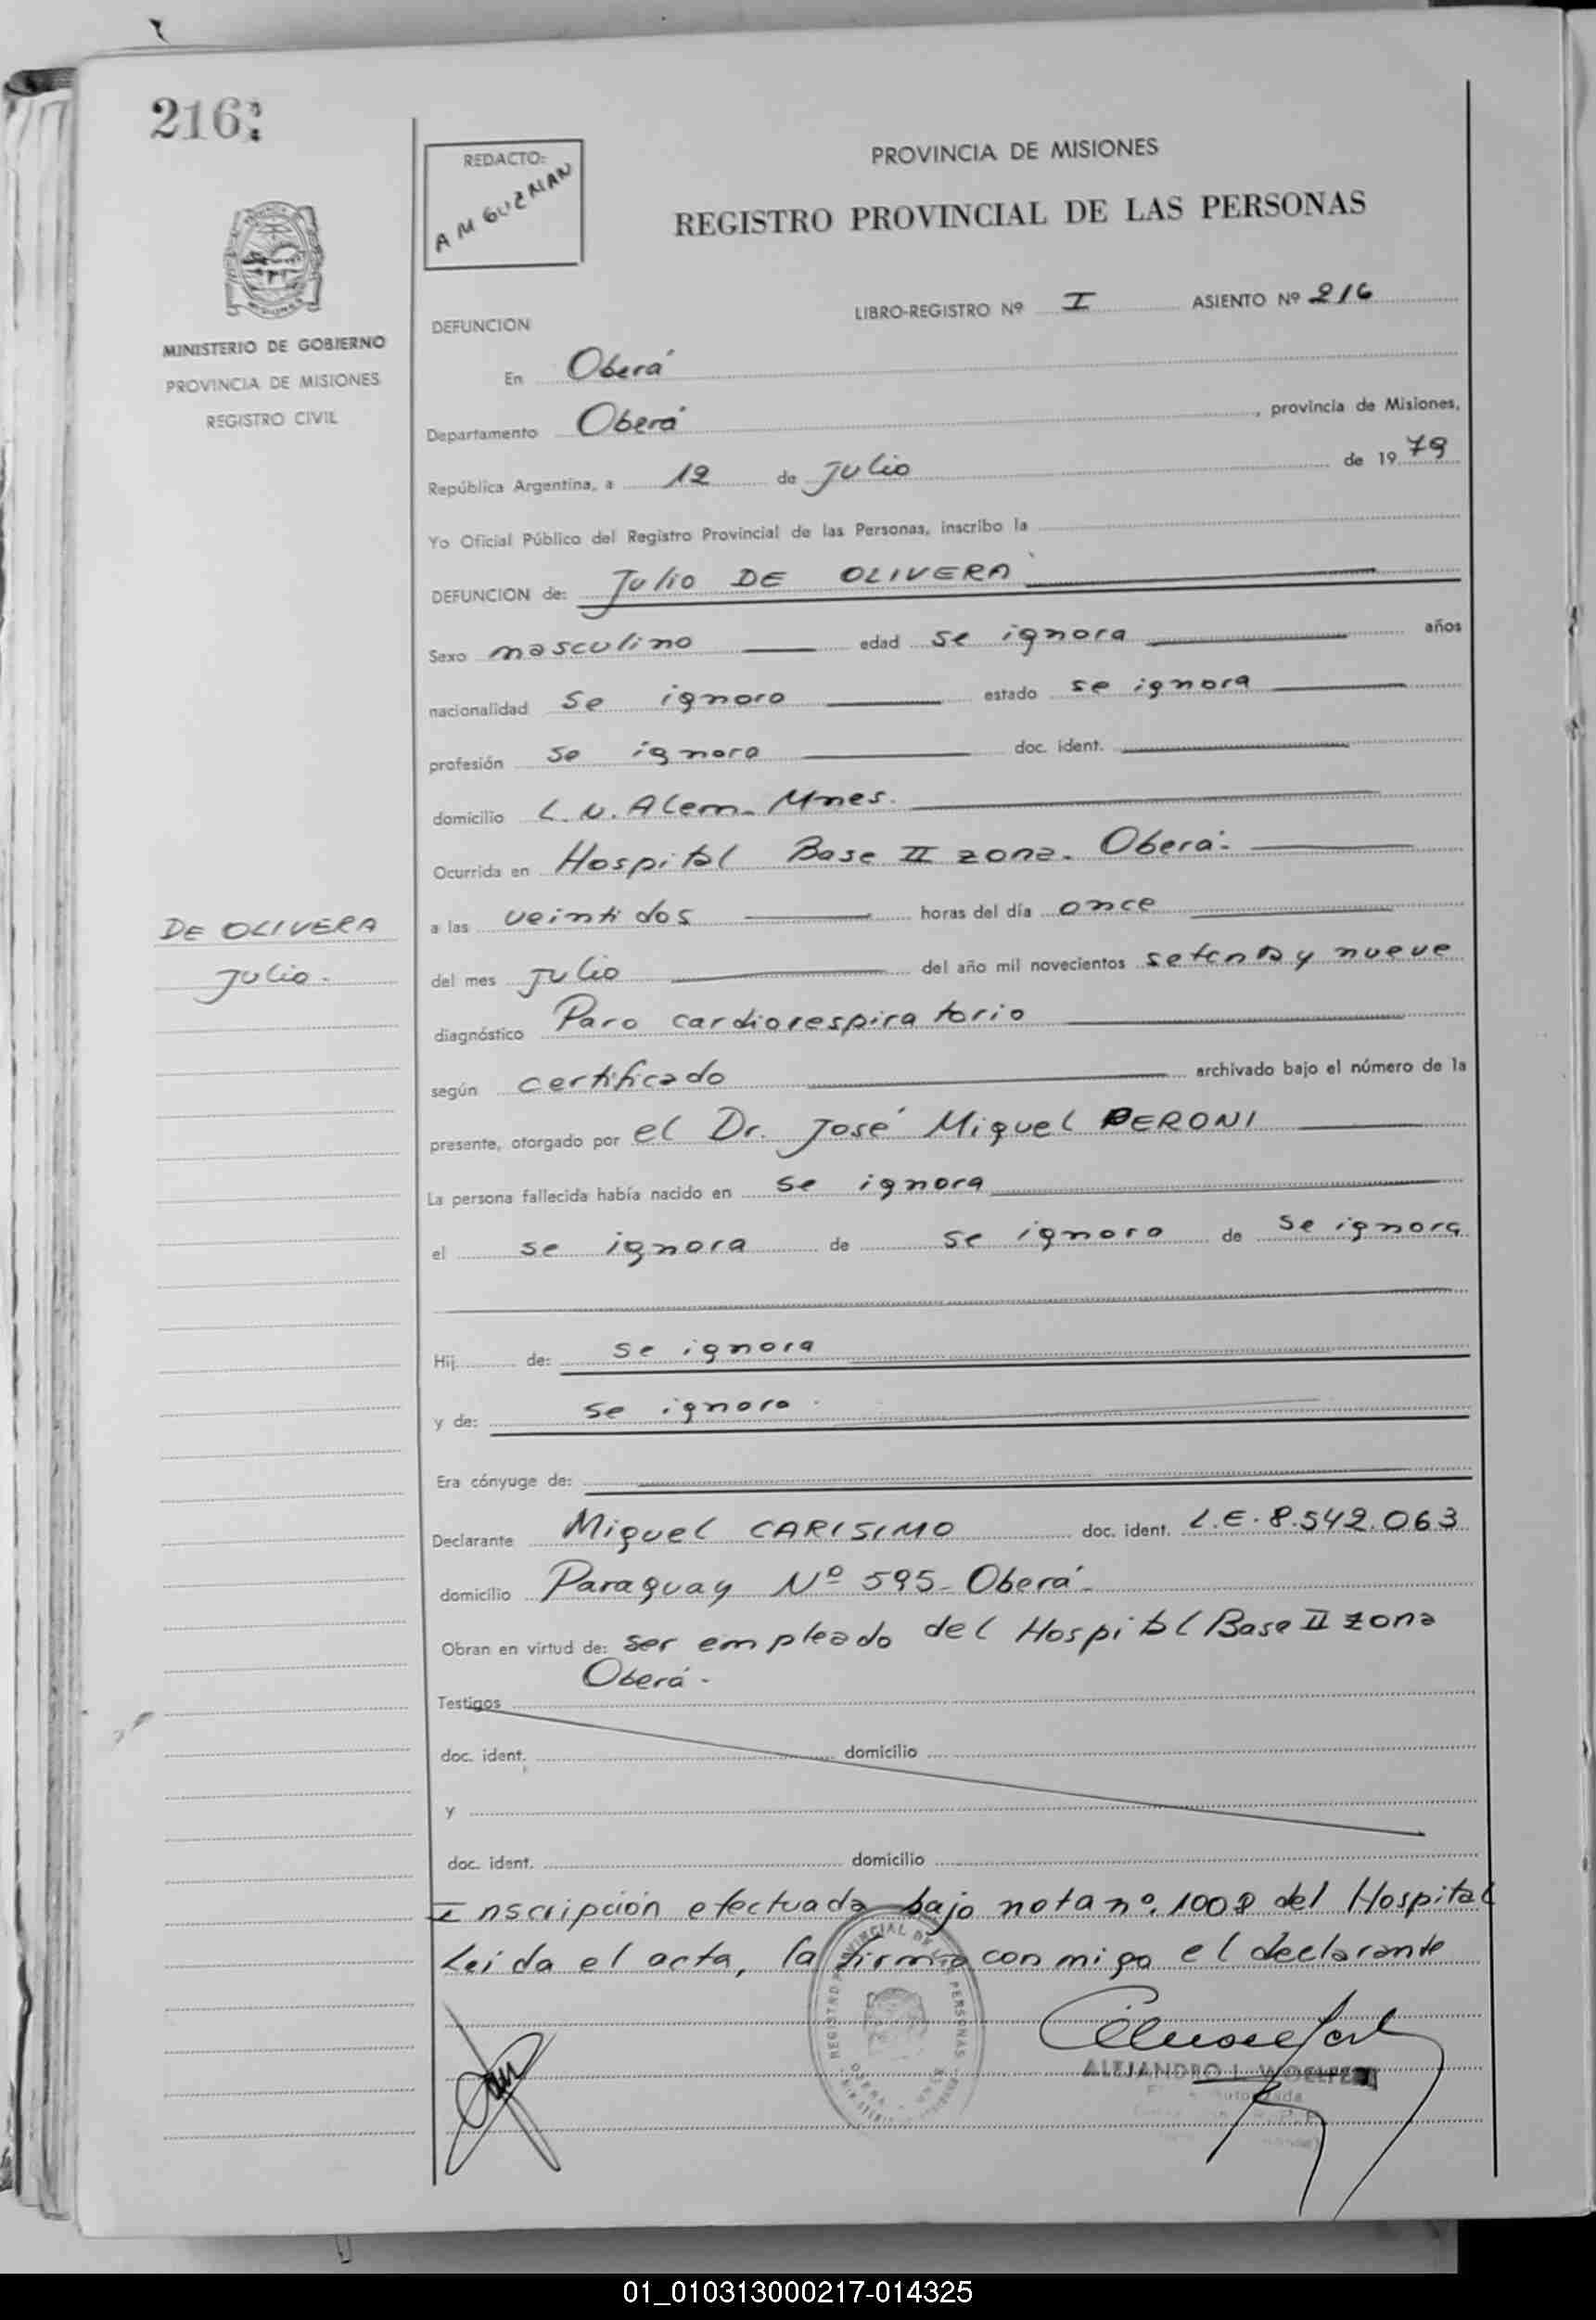 216
REDACTO:
A M GUZMAN
PROVINCIA DE MISIONES
REGISTRO PROVINCIAL DE LAS PERSONAS
MINISTERIO DE GOBIERNO
PROVINCIA DE MISIONES
REGISTRO CIVIL
LIBRO-REGISTRO Nº I ASIENTO Nº 216
DEFUNCION
En Oberá
Departamento Oberá, provincia de Misiones,
República Argentina, a 12 de Julio de 1979
Yo Oficial Público del Registro Provincial de las Personas, inscribo la
DEFUNCION de: Julio DE OLIVERA
Sexo masculino edad se ignora años
nacionalidad se ignora estado se ignora
profesión se ignora doc. ident.
domicilio L.N. Alem - Mnes.
Ocurrida en Hospital Base II zona - Oberá -
DE OLIVERA
Julio -
a las veinti dos horas del día once
del mes julio del año mil novecientos setenta y nueve
diagnóstico Paro cardiorespiratorio
según certificado archivado bajo el número de la
presente, otorgado por el Dr. José Miguel PERONI
La persona fallecida había nacido en se ignora
el se ignora de se ignora de se ignora
Hij de: se ignora
y de: se ignora
Era cónyuge de:
Declarante Miguel CARISIMO doc. ident. L.E. 8.542.063
domicilio Paraguay Nº 595 - Oberá -
Obran en virtud de: ser empleado del Hospital Base II zona
Oberá -
Testigos
doc. ident. domicilio
y
doc. ident. domicilio
Inscripción efectuada bajo nota nº. 1008 del Hospital
Leída el acta, la firma conmigo el declarante
REGISTRO PROVINCIAL DE LAS PERSONAS
ALEJANDRO L. WOELFERT
01_010313000217-014325